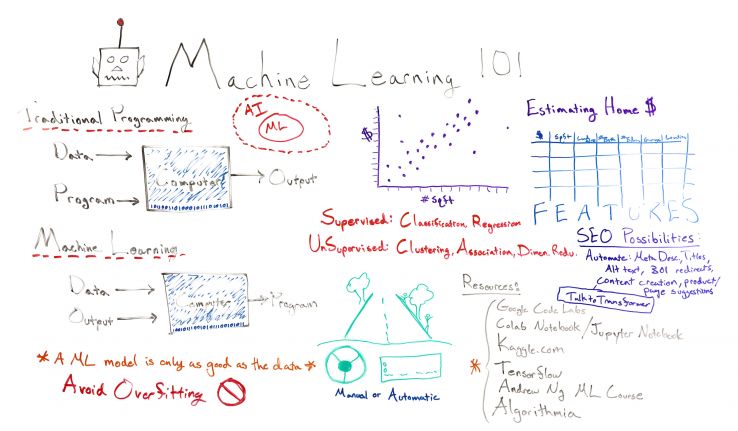 Machine Learning 101
Traditional Programming
Data
Program
Computer
Output
AI
ML
$
# Sqft
Estimating Home $
$ Sqft
FEATURES
Supervised: Classification, Regression
UnSupervised: Clustering, Association, Dimen. Redu.
SEO Possibilities:
Automate: Meta Desc, Titles,
Alt text, 301 redirects,
content creation, product/
page suggestions
TalktoTransformer
Machine Learning
Data
Output
Computer
Program
* A ML model is only as good as the data *
Avoid Overfitting
Manual or Automatic
Resources:
Google Code Labs
Colab Notebook/Jupyter Notebook
Kaggle.com
* Tensorflow
Andrew Ng ML Course
Algorithmia